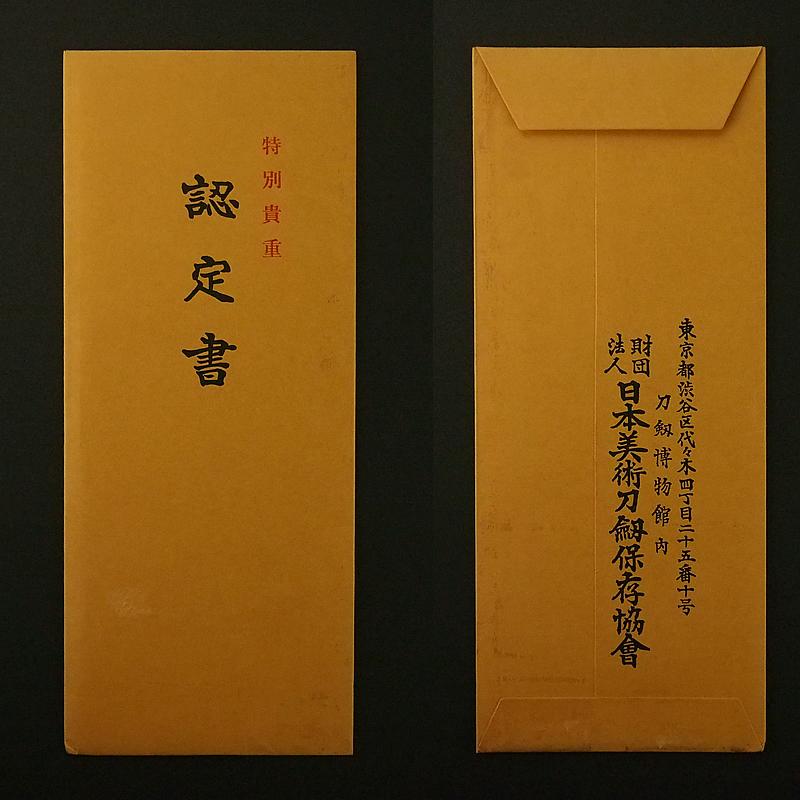 特別貴重
認定書
東京都渋谷区代々木四丁目二十五番十号
刀劔博物館内
財団法人
日本美術刀劔保存協會